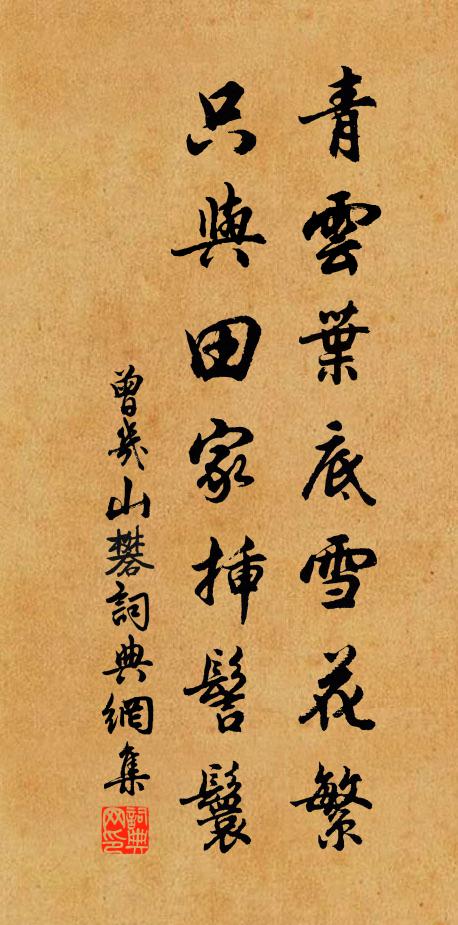 青雲葉底雪花繁
只與田家插髻鬟
曾幾山礬詞典網集
詞典网印